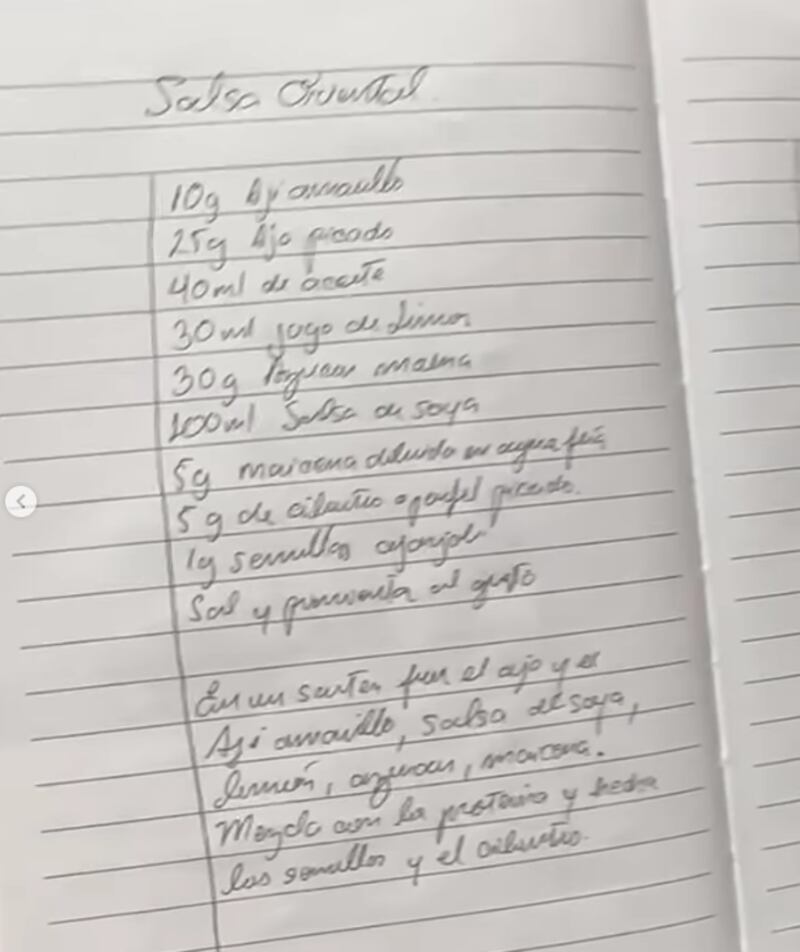 Salsa Oriental
10g Aji amarillo
25g Ajo picado
40ml de aceite
30ml jugo de limon
30g Azucar morena
100ml Salsa de soya
5g maicena diluida en agua fria
5g de cilantro o perejil picado.
1g semillas ajonjoli
Sal y pimienta al gusto
En un sarten frein el ajo y el
Aji amarillo, salsa de soya,
limón, azucar, maicena.
Mezcla con la proteina y hecha
las semillas y el cilantro.